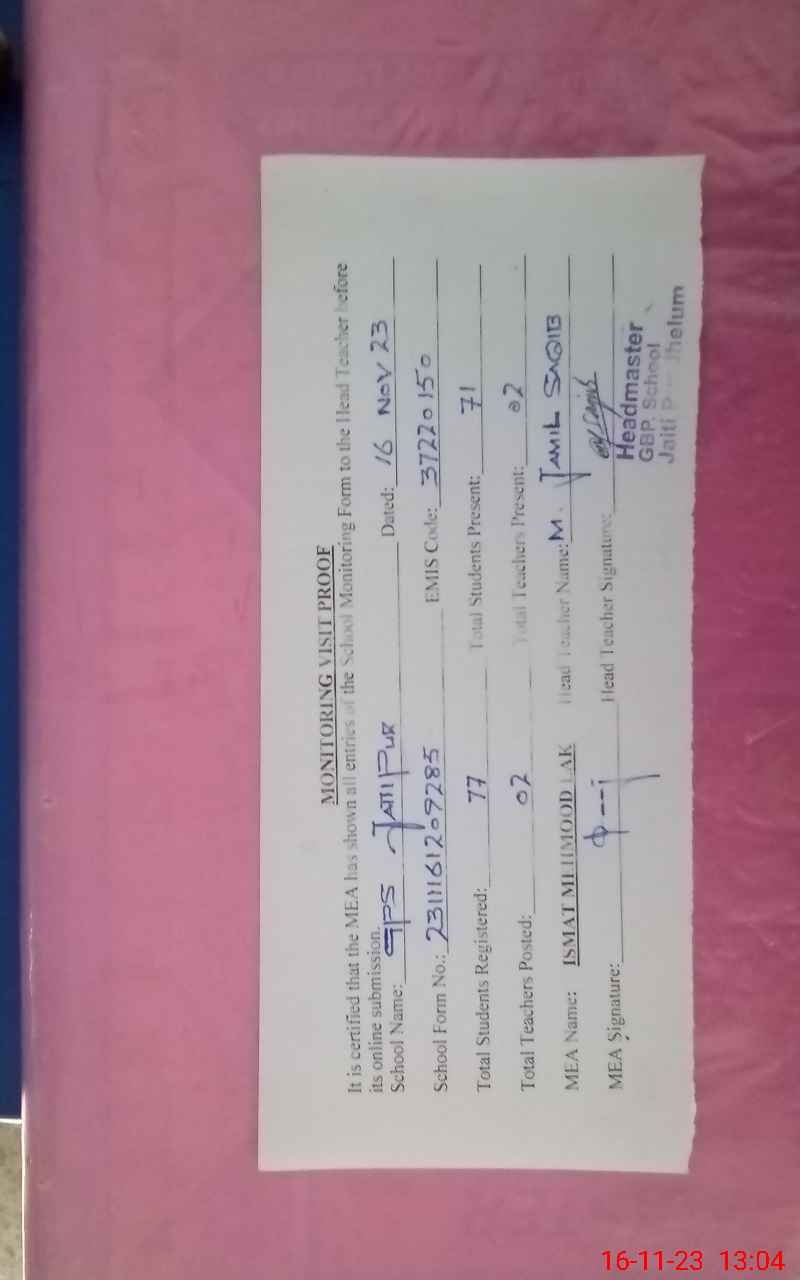 MONITORING VISIT PROOF
It is certified that the MEA has shown all entries of the School Monitoring Form to the Head Teacher before
its online submission.
School Name: GPS JATTIPUR Dated: 16 NOV 23
School Form No.: 2311161209285 EMIS Code: 37220150
Total Students Registered: 77 Total Students Present: 71
Total Teachers Posted: 02 Total Teachers Present: 02
MEA Name: ISMAT MEHMOOD LAK Head Teacher Name: M. JAMIL SAQIB
MEA Signature: Head Teacher Signature:
Headmaster
GBP. School
Jaiti Jhelum
16-11-23 13:04